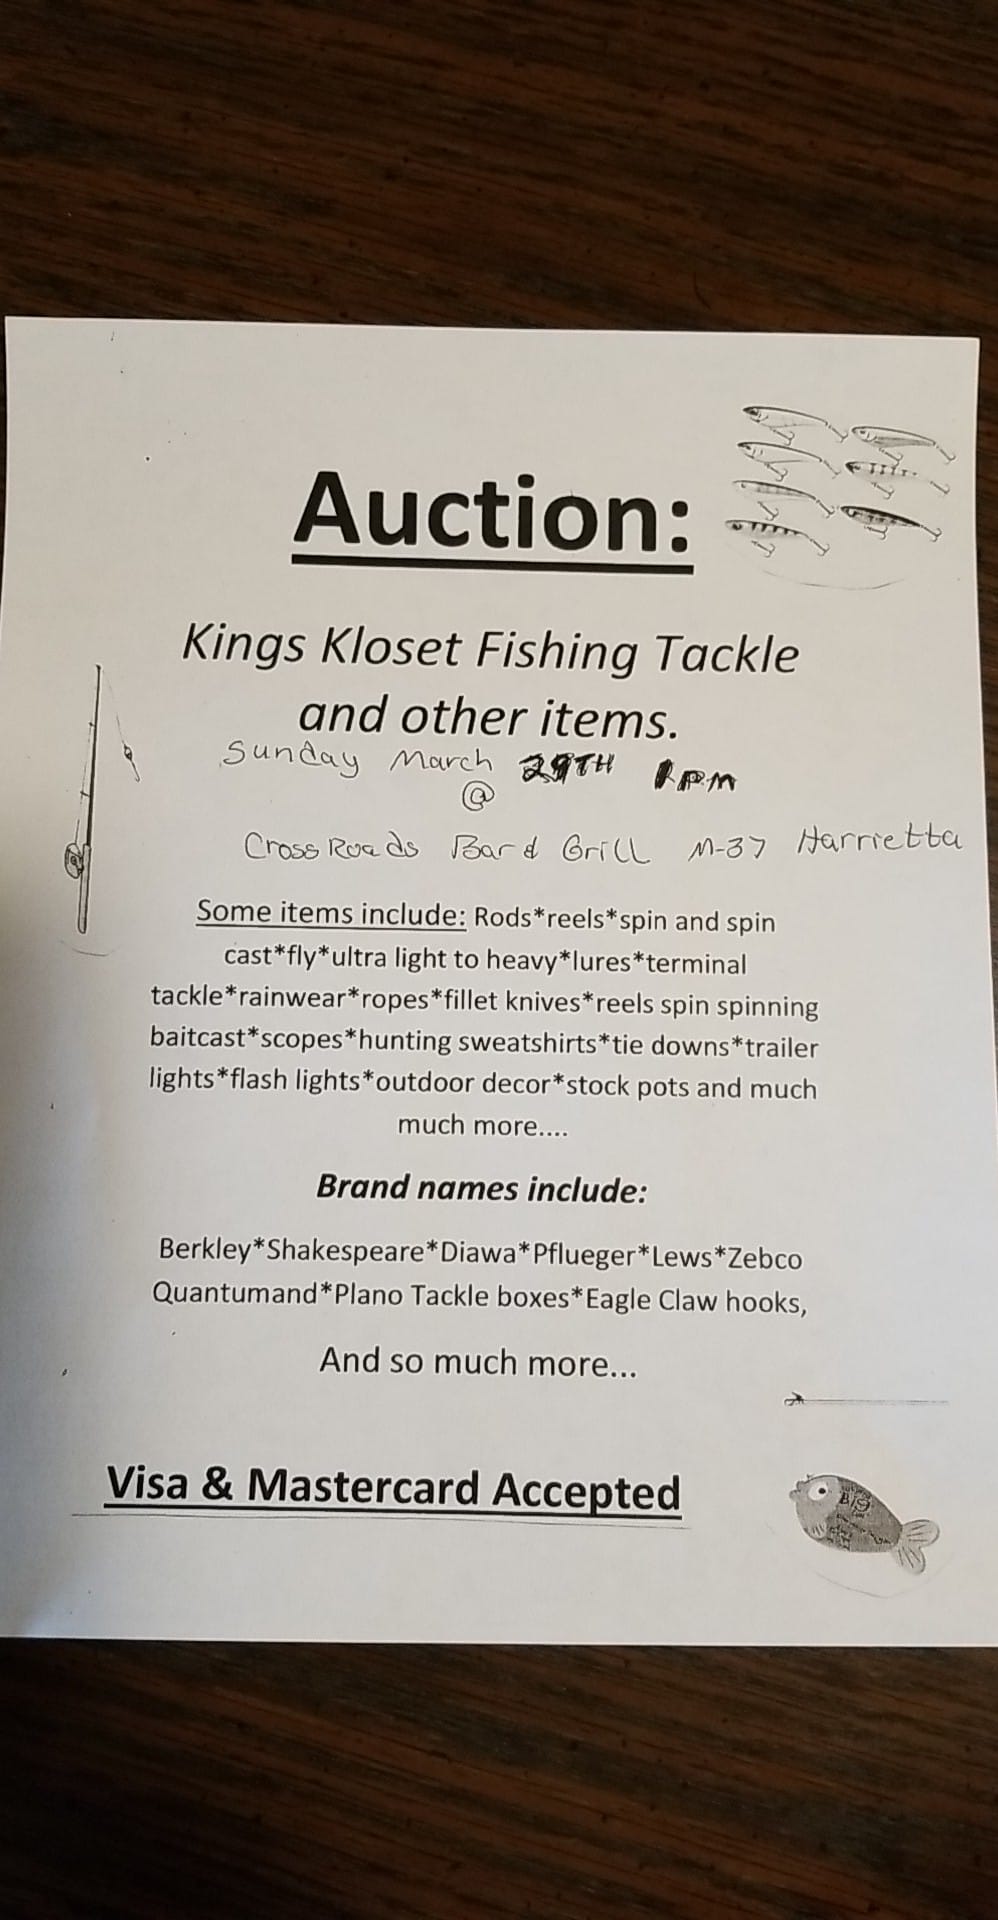 Auction:
Kings Kloset Fishing Tackle
and other items.
Sunday March 29TH 1PM
@
CrossRoads Bar & Grill M-37 Harrietta
Some items include: Rods*reels*spin and spin
cast*fly*ultra light to heavy*lures*terminal
tackle*rainwear*ropes*fillet knives*reels spin spinning
baitcast*scopes*hunting sweatshirts*tie downs*trailer
lights*flash lights*outdoor decor*stock pots and much
much more....
Brand names include:
Berkley*Shakespeare*Diawa*Pflueger*Lews*Zebco
Quantumand*Plano Tackle boxes*Eagle Claw hooks,
And so much more...
Visa & Mastercard Accepted
Big